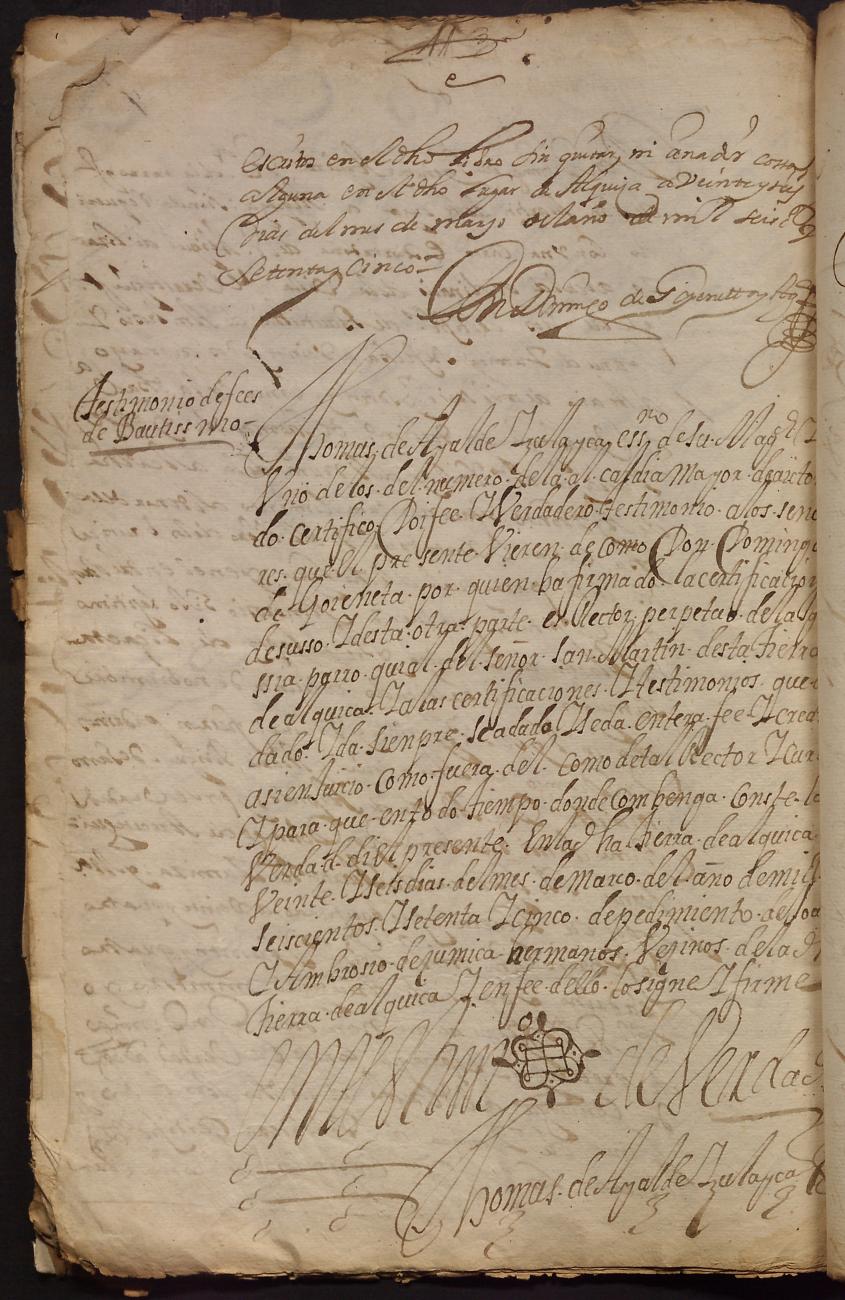 escritos en el dho libro sin quitar, ni añadir cossa
alguna en el dho lugar de Alquiça a veinte y seis
dias del mes de março del año de mil seis
setenta y cinco
Don Domingo de Goyeneta
Testimonio de fees
de Bautissmo
Thomas de Ayalde Zulayca, essno de su Magd
Uno de los del numero de la alcaldia mayor de
do. certifico Doi fee IVerdadero testimonio a los seño
res que el presente Vieren de como Don Domingo
de Goieneta por quien ha firmado la certificacion
de susso Idesta otra parte es Rector perpetuo de la
ssia parroquial del señor San Martin desta tierra
de alquiça Ialas certificaciones Itestimonios que
dado Ida sienpre se adado Iseda entera fee I
asi en Juicio como fuera del como de tal Rector I
Ipara que en todo tiempo donde combenga conste la
Verdad di el presente En la dha tierra de alquiça
Veinte Iseis dias del mes de março del año de mill
seiscientos Isetenta Icinco de pedimiento de
IAmbrosio de çumiça hermanos Veçinos de la dha
tierra de alquiça Ien fee dello lo signe Ifirme
En testimo de Verdad
Thomas de Ayalde Zulayca